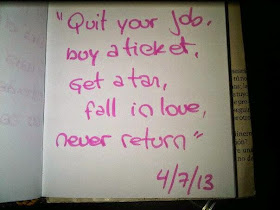 "Quit your job,
buy a ticket,
get a tan,
fall in love,
never return"
4/7/13